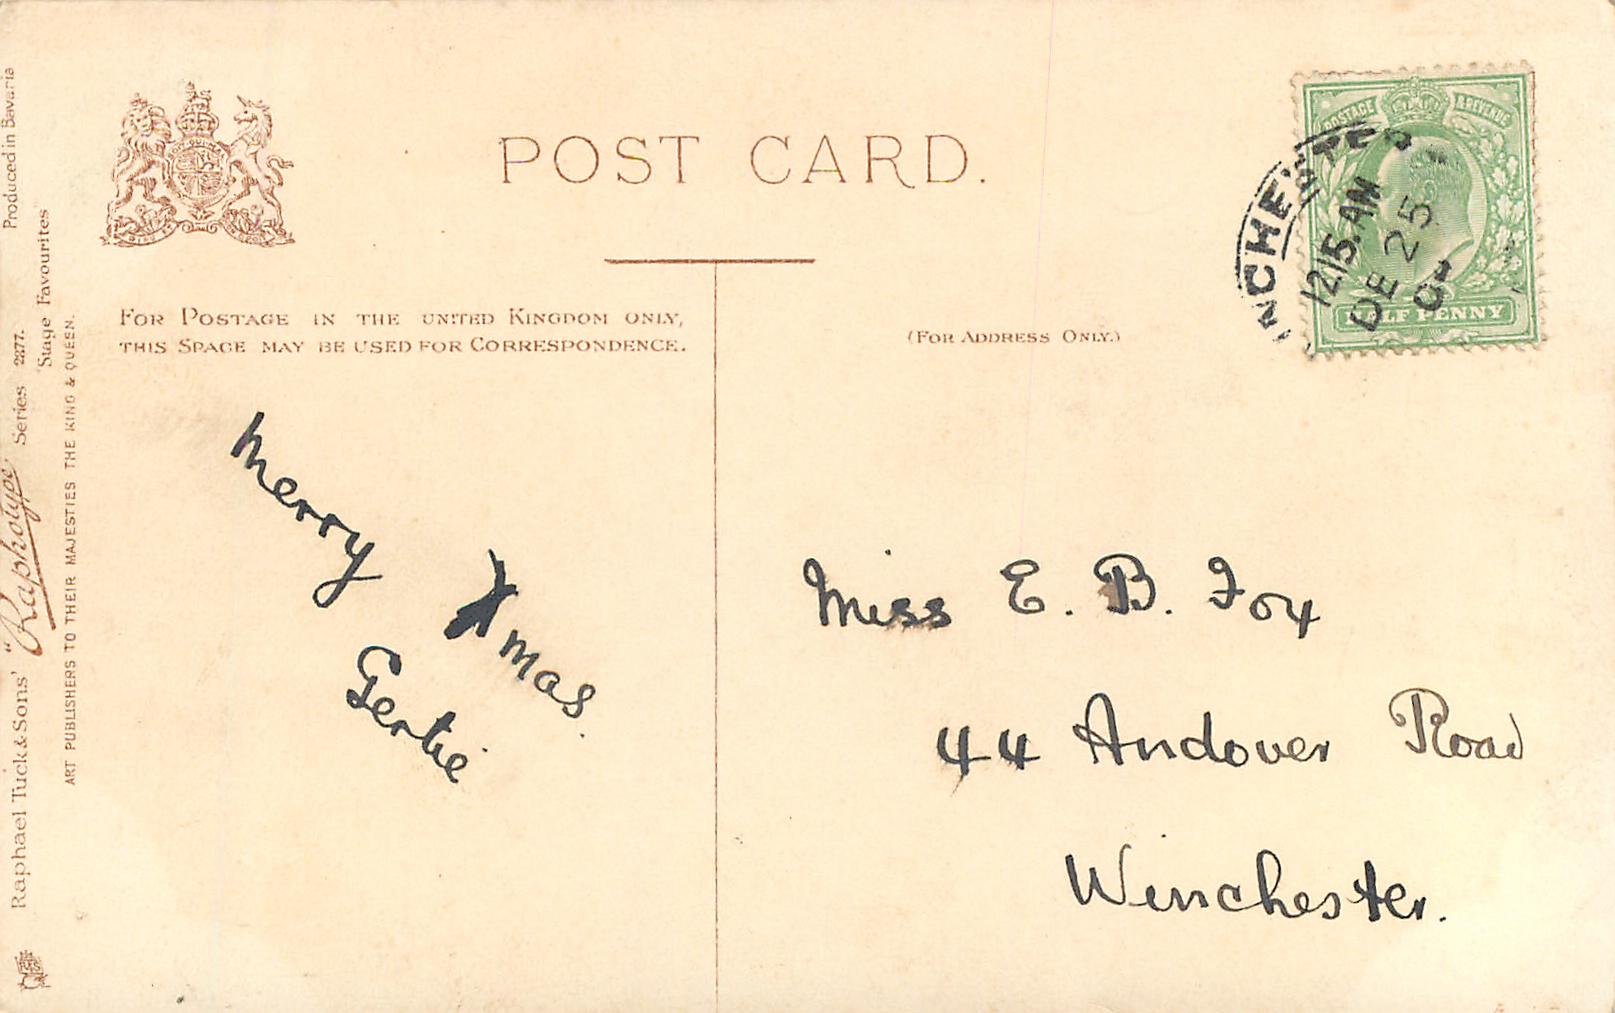 POST CARD.
FOR POSTAGE IN THE UNITED KINGDOM ONLY,
THIS SPACE MAY BE USED FOR CORRESPONDENCE.
(FOR ADDRESS ONLY.)
Merry
Xmas.
Gertie
Miss E. B. Fox
44 Andover Road
Winchester.
POSTAGE & REVENUE
HALF PENNY
12.15 AM
DE 25
Raphael Tuck & Sons' "Raphotype" Series 2877.
Stage Favourites
Produced in Bavaria
ART PUBLISHERS TO THEIR MAJESTIES THE KING & QUEEN.